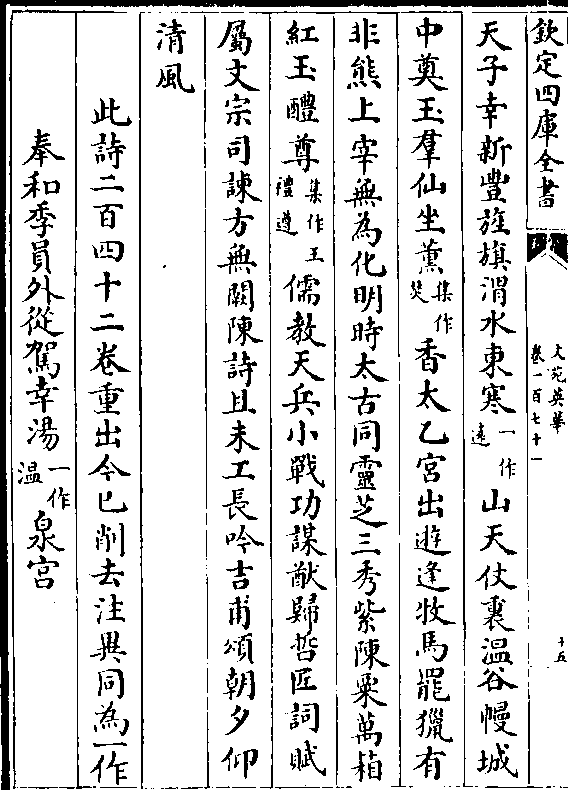 欽定四庫全書
文苑英華
卷一百七十一
十五
天子幸新豐旌旗渭水東寒一作遠山天仗裏温谷幔城
中奠玉羣仙坐薰集作焚香太乙宫出遊逢牧馬罷獵有
非熊上宰無為化明時太古同靈芝三秀紫陳粟萬箱
紅玉醴尊集作王禮遵儒教天兵小戰功謀猷歸哲匠詞賦
屬文宗司諫方無闕陳詩且未工長吟吉甫頌朝夕仰
清風
此詩二百四十二卷重出今已削去注異同為一作
奉和季員外從駕幸湯一作温泉宫